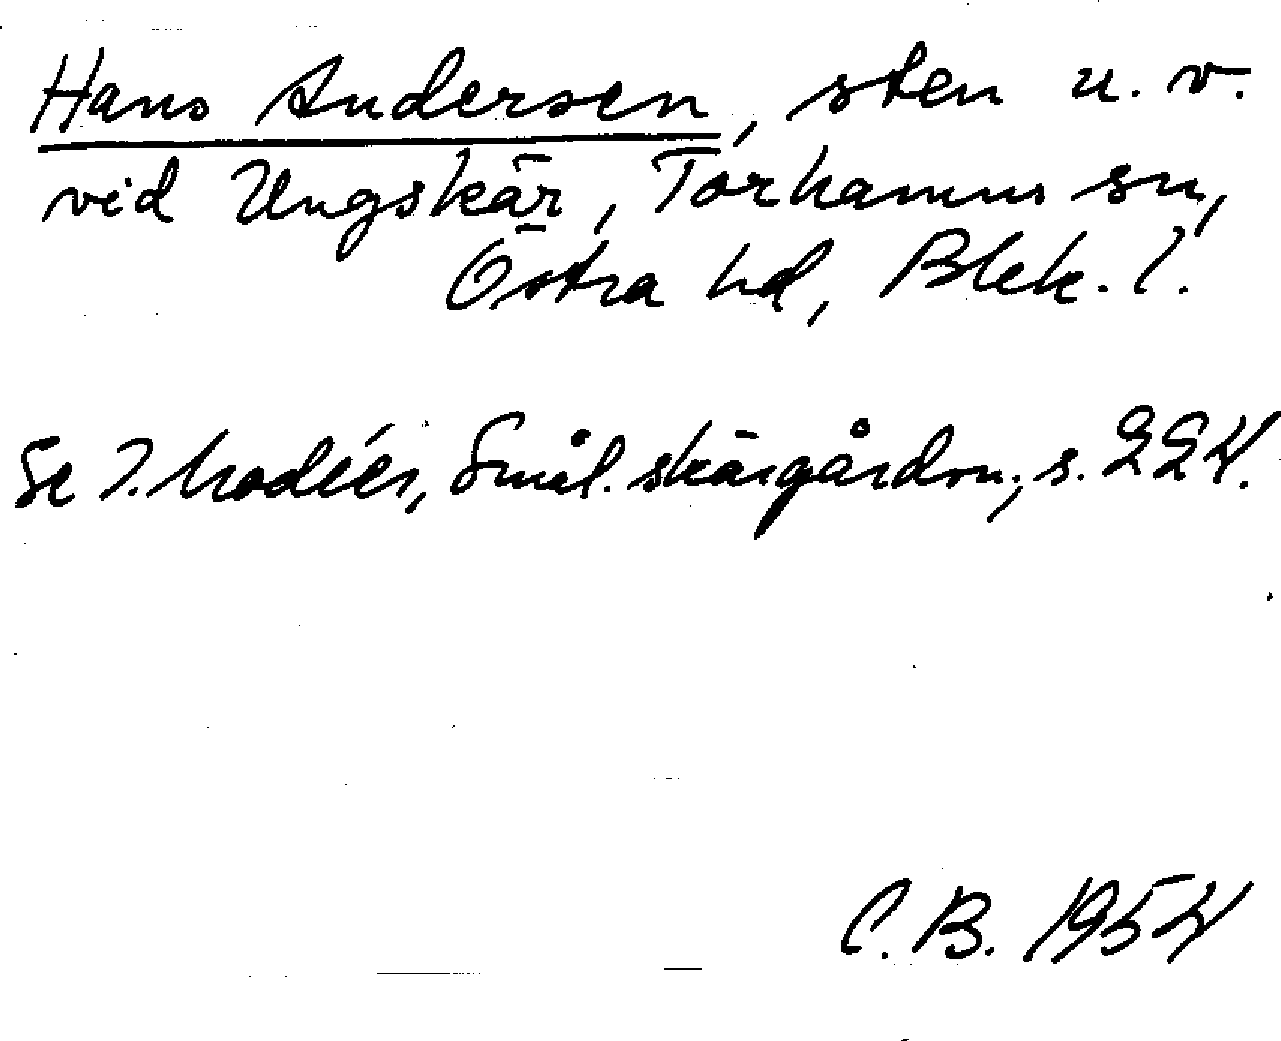 Hans Andersen, sten u. v.
vid Ungskär, Torhamns sn,
Östra hd, Blek. l.
Se I. Modéer, Smål. skärgårdsn., s. 224.
C. B. 1954